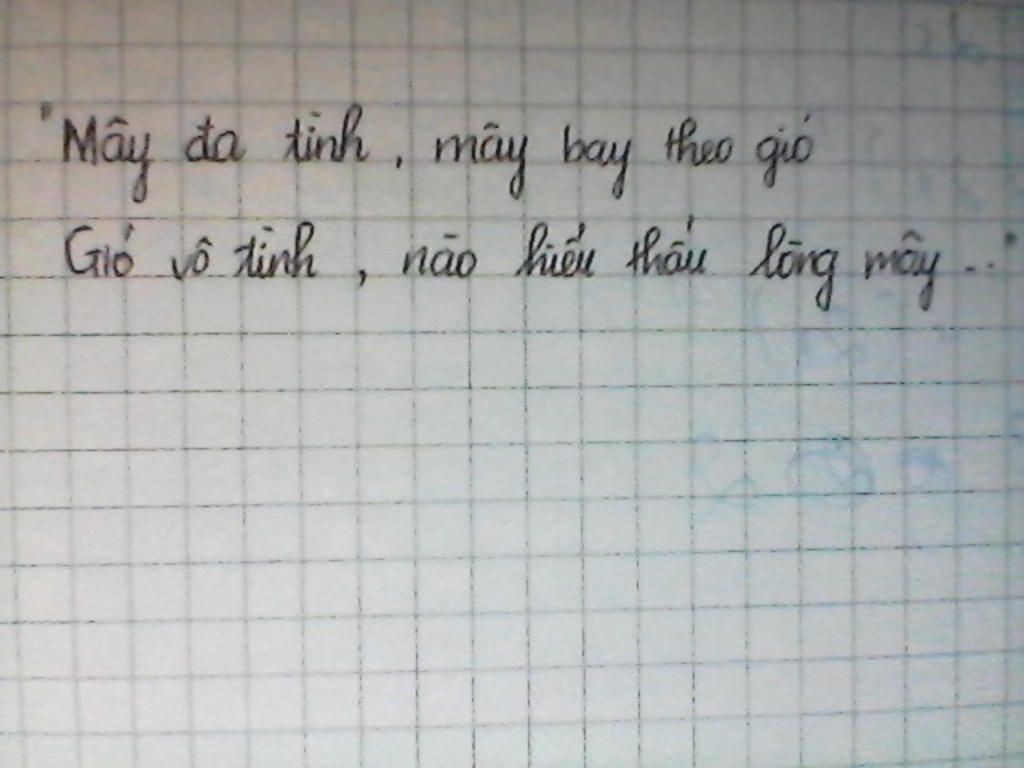 "Mây đa tình, mây bay theo gió
Gió vô tình, nào hiểu thấu lòng mây..."